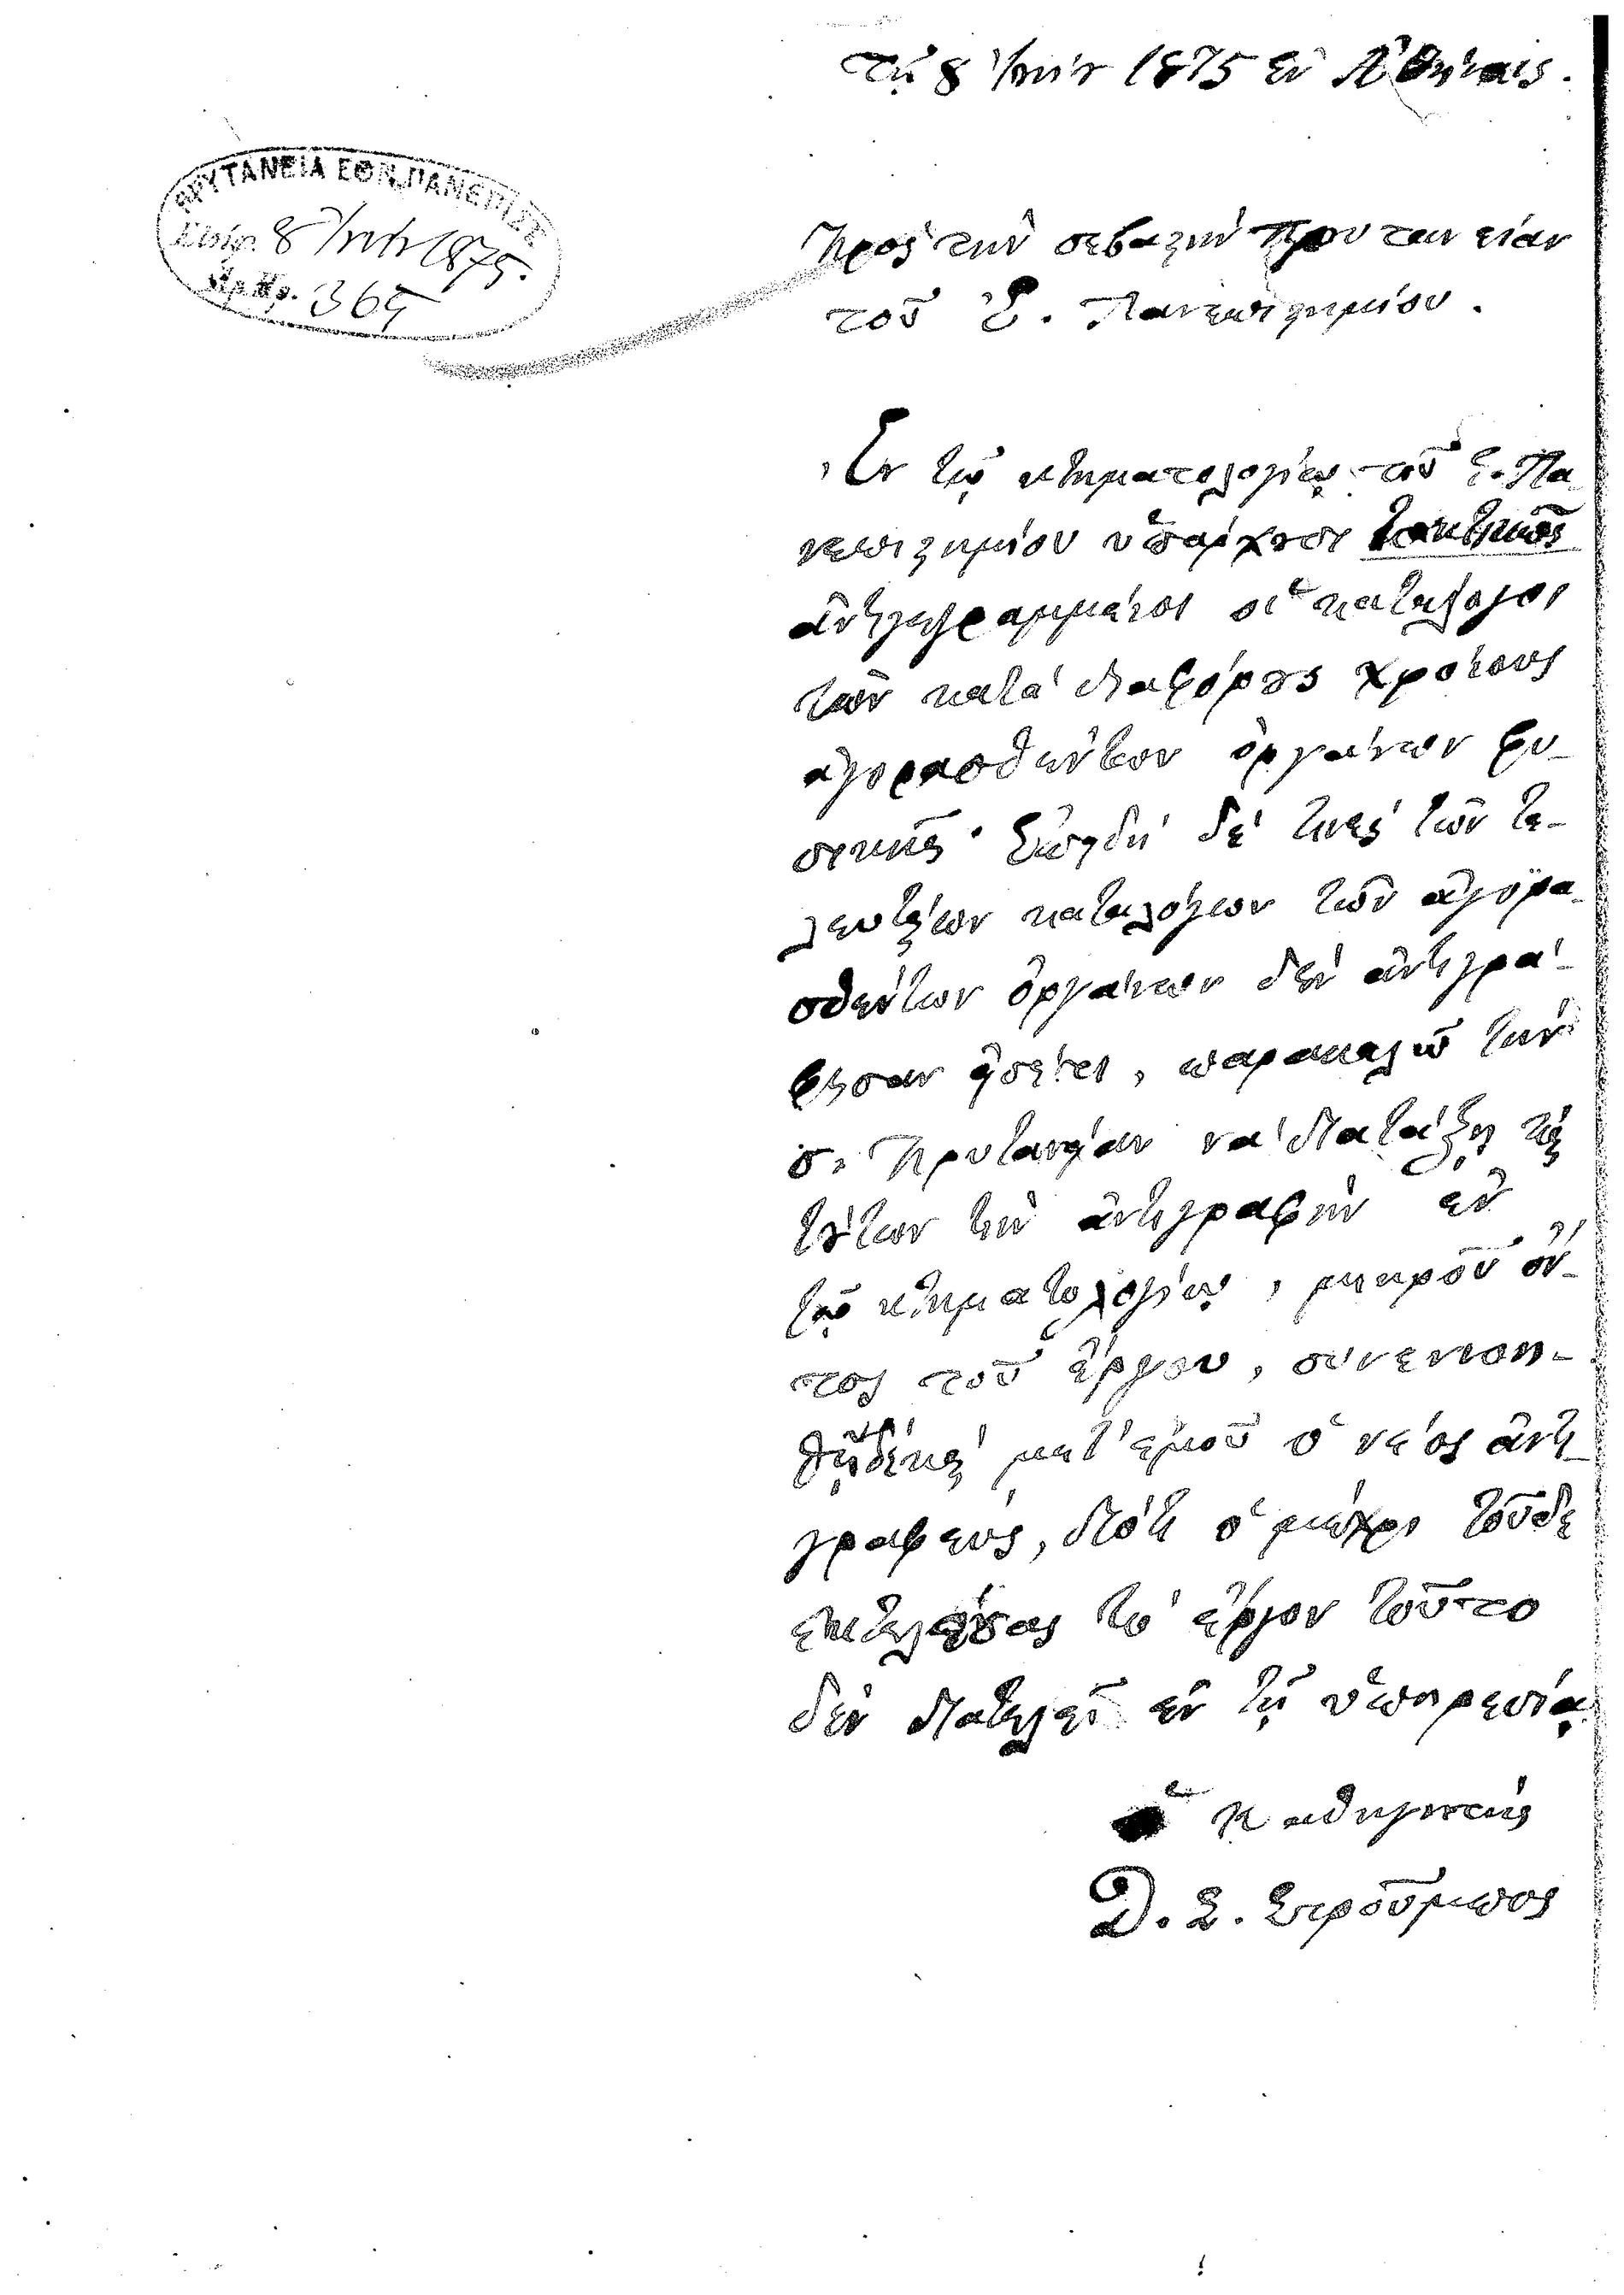 Τῇ 8 Ἰουν 1875 ἐν Ἀθήναις.
ΠΡΥΤΑΝΕΙΑ ΕΘΝ. ΠΑΝΕΠΙΣΤ
8 1875.
Ἀρ. Πρ.
Πρὸς τὴν σεβαστὴν Πρυτανείαν
τοῦ Ἐ. Πανεπιστημίου.
Ἐν τῷ κτηματολογίῳ τοῦ Ἐ. Πα
νεπιστημίου ὑπάρχουσι τακτικῶς
ἀντιγεγραμμένοι οἱ κατάλογοι
τῶν κατὰ διαφόρους χρόνους
ἀγορασθέντων ὀργάνων φυ-
σικῆς. Ἐπειδὴ δέ τινες τῶν τε-
λευταίων καταλόγων τῶν ἀγορα-
σθέντων ὀργάνων δὲν ἀντεγρά-
φησαν εἰσέτι, παρακαλῶ τὴν
σ. Πρυτανείαν νὰ διατάξῃ τὴν
τούτων τὴν ἀντιγραφὴν ἐν
τῷ κτηματολογίῳ, μικροῦ ὄν-
τος τοῦ ἔργου, συνεννοη-
μετ' ἐμοῦ ὁ νέος ἀντι-
γραφεύς, διότι ὁ μέχρι τοῦδε
ἐκτελέσας τὸ ἔργον τοῦτο
δὲν διατελεῖ ἐν τῇ ὑπηρεσίᾳ
ὁ Καθηγητὴς
Δ. Σ. Στροῦμπος